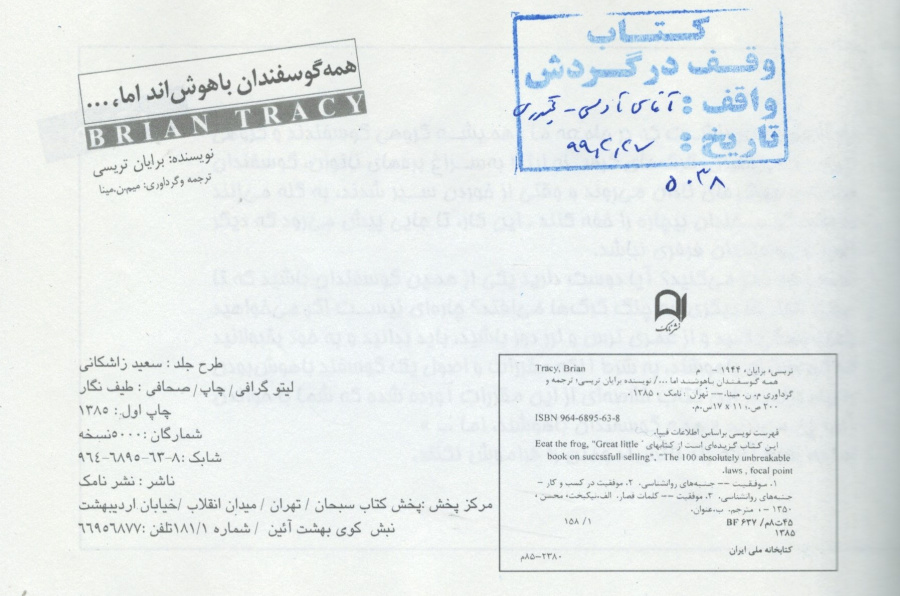 همه گوسفندان باهوش‌اند اما،...
BRIAN TRACY
نویسنده: برایان تریسی
ترجمه وگرداوری: میم.ن.مینا
کتاب
وقف در گردش
واقف :
تاریخ : ۹۹,۲,۲۷
۵۰۳۸
نشر نامک
طرح جلد : سعید زاشکانی
لیتو گرافی/ چاپ/ صحافی : طیف نگار
چاپ اول: ۱۳۸۵
شمارگان :۵۰۰۰نسخه
شابک :۸-۶۳-۶۸۹۵-۹۶۴
ناشر : نشر نامک
مرکز پخش :پخش کتاب سبحان / تهران / میدان انقلاب /خیابان اردیبهشت
نبش کوی بهشت آئین / شماره ۱۸۱/۱تلفن :۶۶۹۵۶۸۷۷
تریسی، برایان، ۱۹۴۴ –
Tracy, Brian
همه گوسفندان باهوشند اما .../ نویسنده برایان تریسی؛ ترجمه و
گرداوری م. ن. مینا.-- تهران : نامک ، ۱۳۸۵.
۲۰۰ ص.؛ ۱۱ × ۱۷س.م.
ISBN 964-6895-63-8
فهرست نویسی براساس اطلاعات فیپا.
این کتاب گزیده‌ای است از کتابهای " Eeat the frog, "Great little
book on successfull selling". "The 100 absolutely unbreakable
laws , focal point.
۱. موفقیت -- جنبه‌های روانشناسی. ۲. موفقیت در کسب و کار -
جنبه‌های روانشناسی. ۳. موفقیت -- کلمات قصار. الف.نیکبخت، محسن،
۱۳۵۰ - ، مترجم. ب.عنوان.
۴۵ت۸م/ BF ۶۳۷
۱۵۸ /۱
۱۳۸۵
کتابخانه ملی ایران
۲۳۸۰–۸۵م